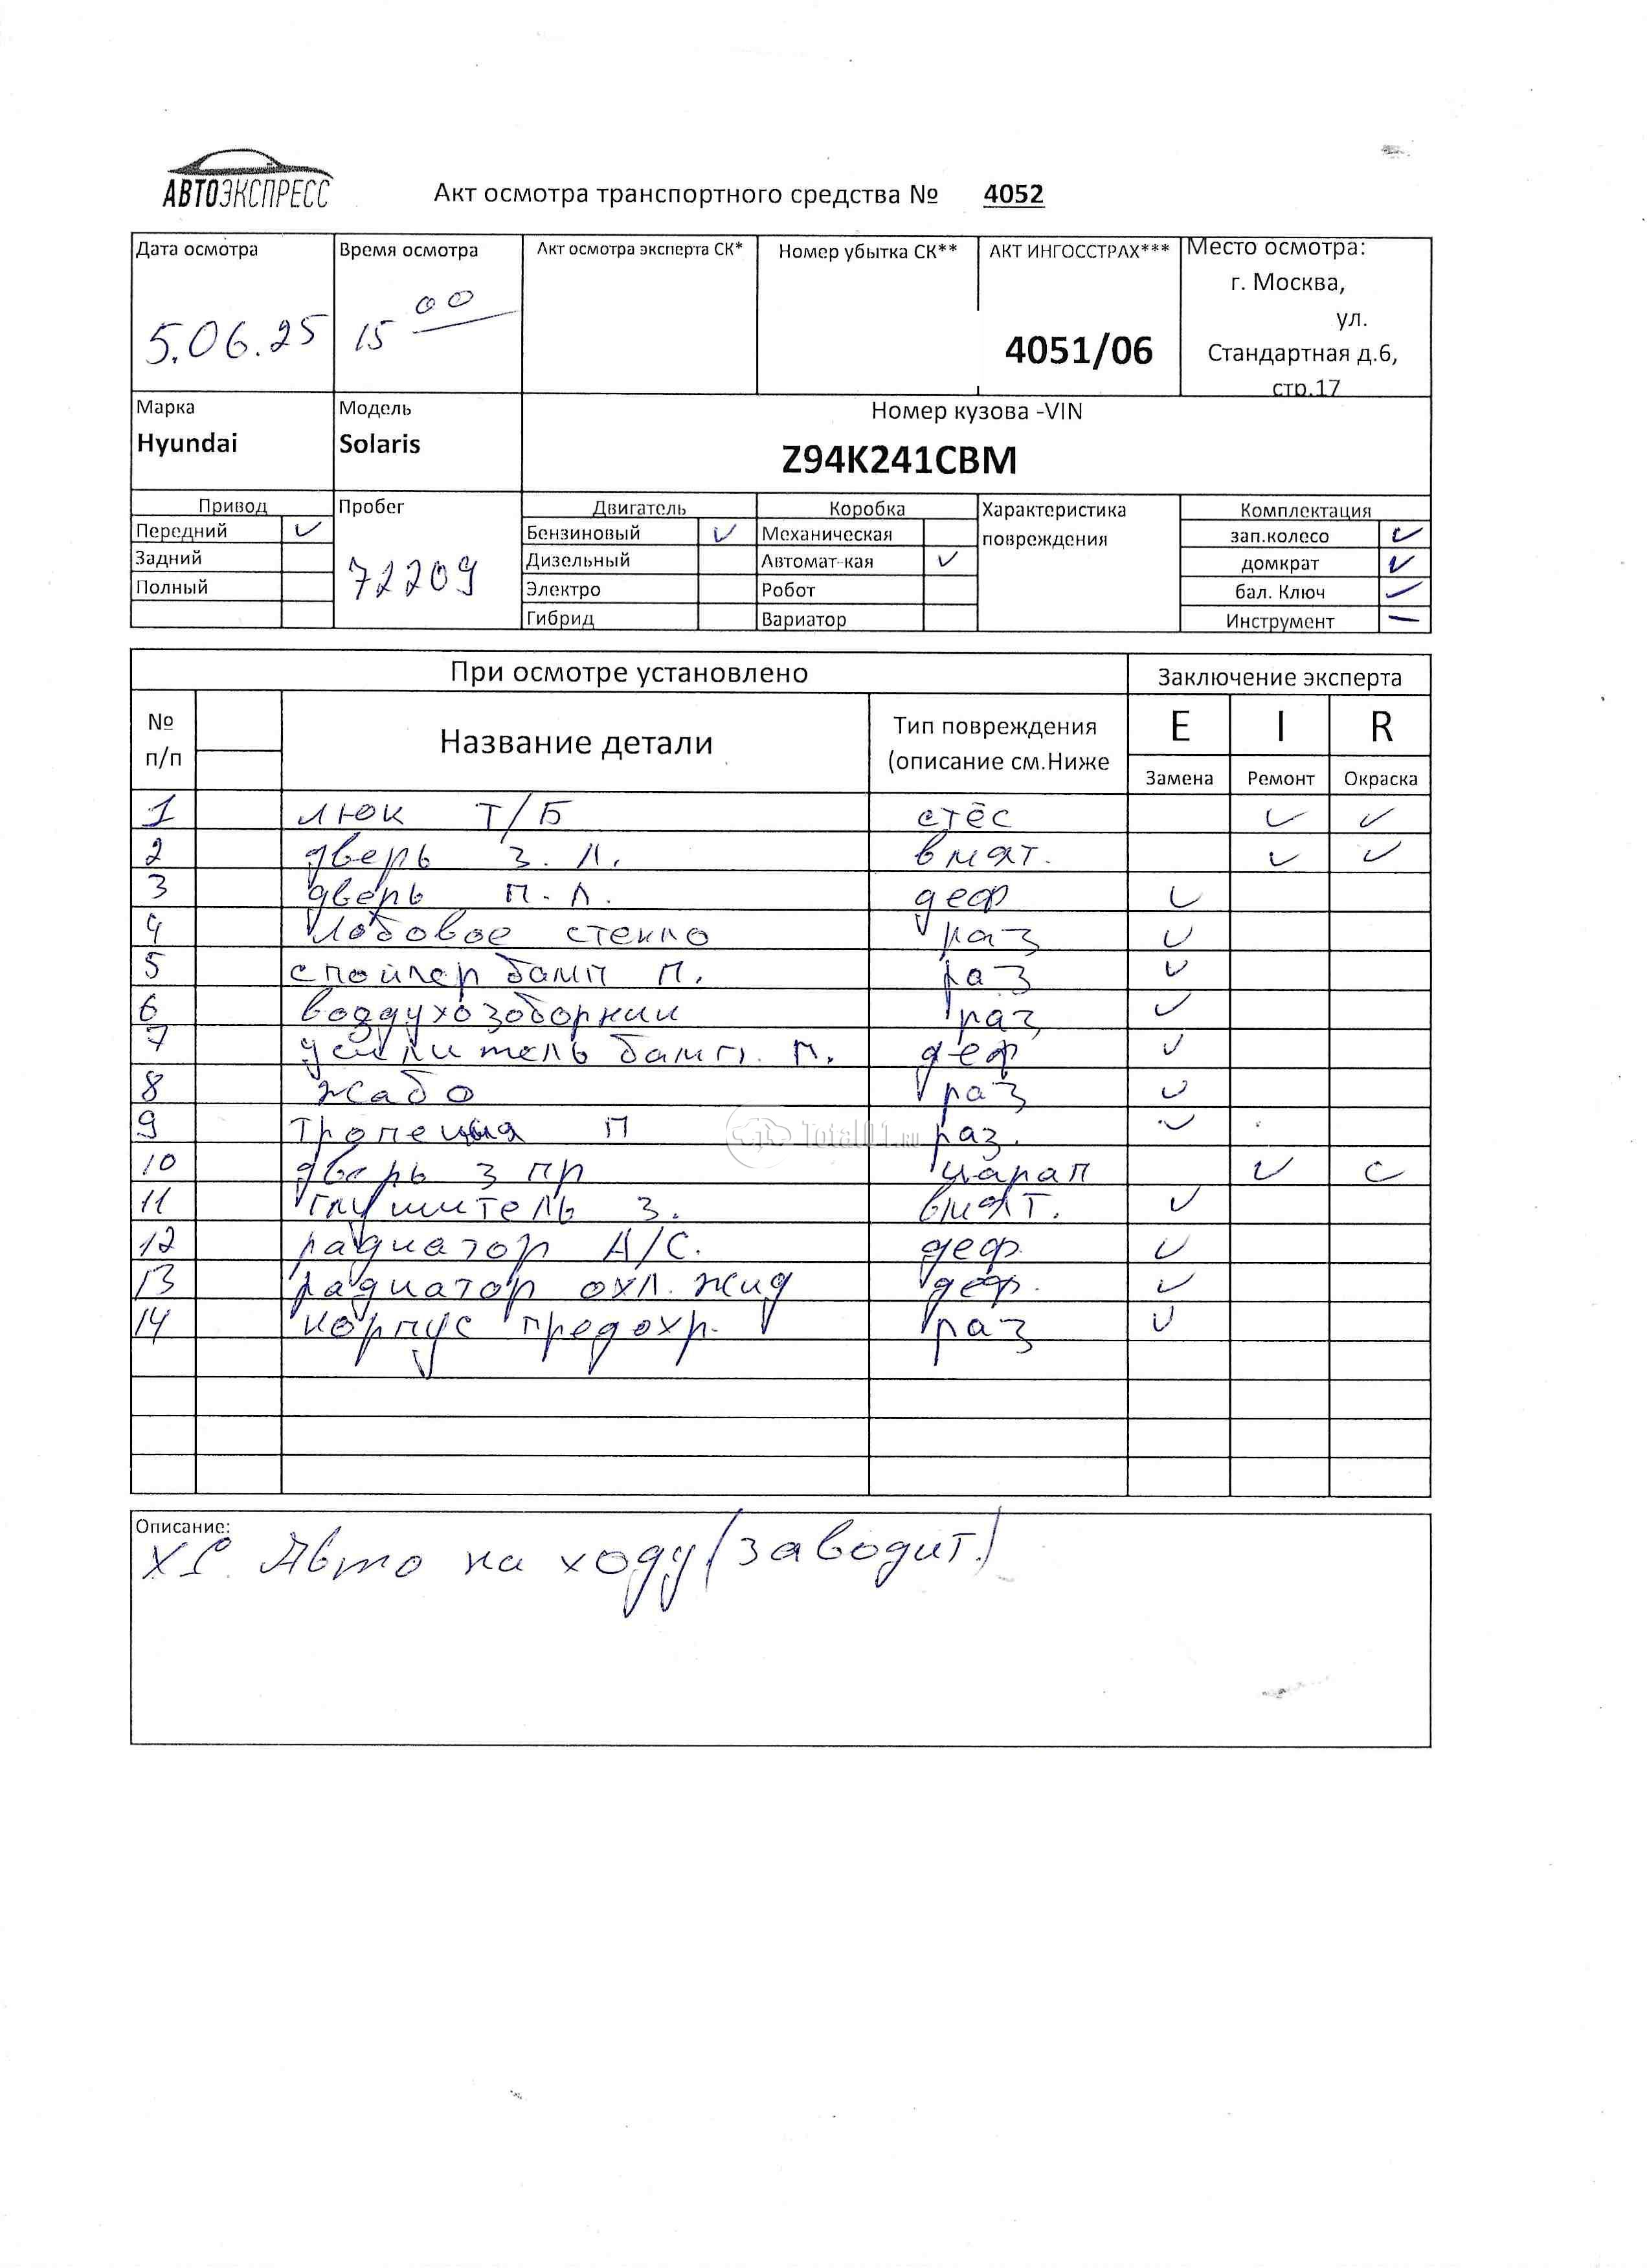 АВТОЭКСПРЕСС
Акт осмотра транспортного средства № 4052
Дата осмотра Время осмотра Акт осмотра эксперта СК* Номер убытка СК** АКТ ИНГОССТРАХ*** Место осмотра:
г. Москва,
ул.
5.06.25 15 00 4051/06 Стандартная д.6,
стр.17
Марка Модель Номер кузова -VIN
Hyundai Solaris Z94K241CBM
Привод Пробег Двигатель Коробка Характеристика Комплектация
Передний ✓ Бензиновый ✓ Механическая повреждения зап.колесо ✓
Задний 72209 Дизельный Автомат-кая ✓ домкрат ✓
Полный Электро Робот бал. Ключ ✓
Гибрид Вариатор Инструмент —
При осмотре установлено Заключение эксперта
№ п/п Название детали Тип повреждения (описание см.Ниже E I R
Замена Ремонт Окраска
1 люк Т/Б стёс ✓ ✓
2 дверь З. Л. вмят. ✓ ✓
3 дверь П. Л. деф ✓
4 Лобовое стекло раз ✓
5 спойлер бамп П. раз ✓
6 раз ✓
7 усилитель бамп. П. деф ✓
8 жабо раз ✓
9 П раз. ✓
10 дверь З пр царап ✓ ✓
11 глушитель З. вмят. ✓
12 радиатор А/С. деф. ✓
13 радиатор охл. жид деф. ✓
14 корпус предохр. раз ✓
Описание:
Авто на ходу (заводит.)
Total01.ru